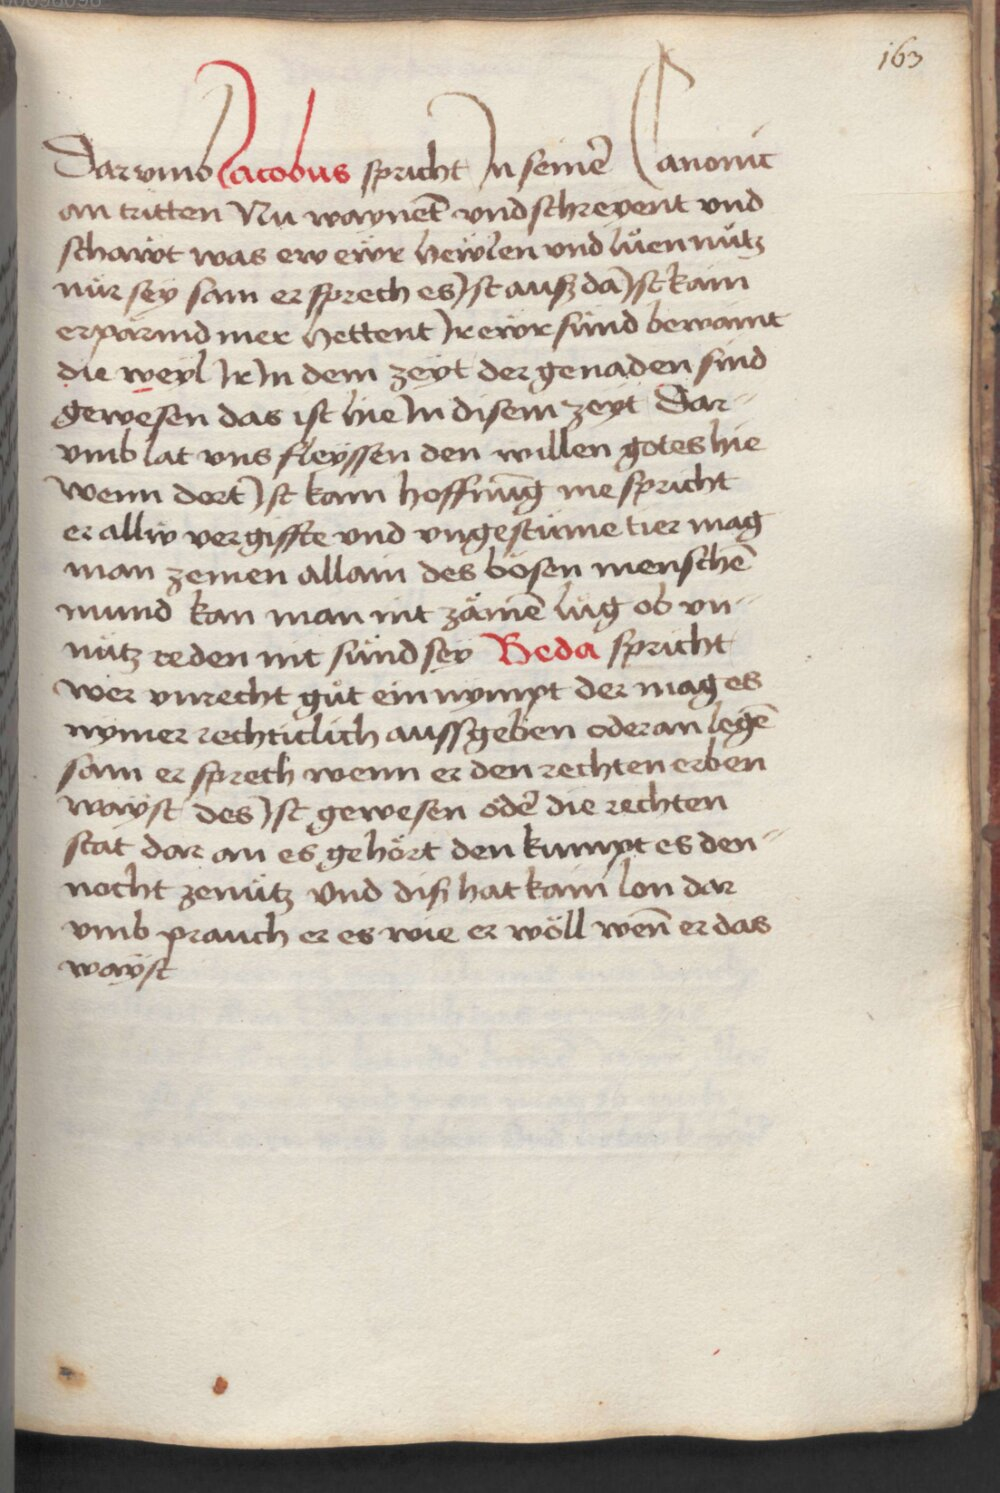 163
Darvmb Jacobus spricht In seinē Canonic
an tritten Nu waynet vnd schreyent vnd
schawt was ew ewr hewlen vnd lüen nütz
nür sey sam er sprech es Ist ausz da Ist kain
erpärmd mer hettent Ir ewr sünd bewaint
die weyl Ir In dem zeyt der genaden sind
gewesen das ist hie In disem zeyt Dar-
vmb lat vns fleyssen den willen gotes hie
wenn dort Ist kain hoffnūg me spricht
er allw vergiffte vnd vngestüme tier mag
man zemen allain des bösen menschē
mund kan man nit zämē lug ob vn-
nütz reden nit sünd sey Beda spricht
wer vnrecht gůt ein nympt der mag es
nymer rechticlich aussgeben oder an legē
sam er sprech wenn er den rechten erben
wayst des Ist gewesen odē die rechten
stat dar an es gehört den kumpt es den-
nocht ze nütz vnd disz hat kain lon dar
vmb prauch er es wie er wöll wen̄ er das
wayst